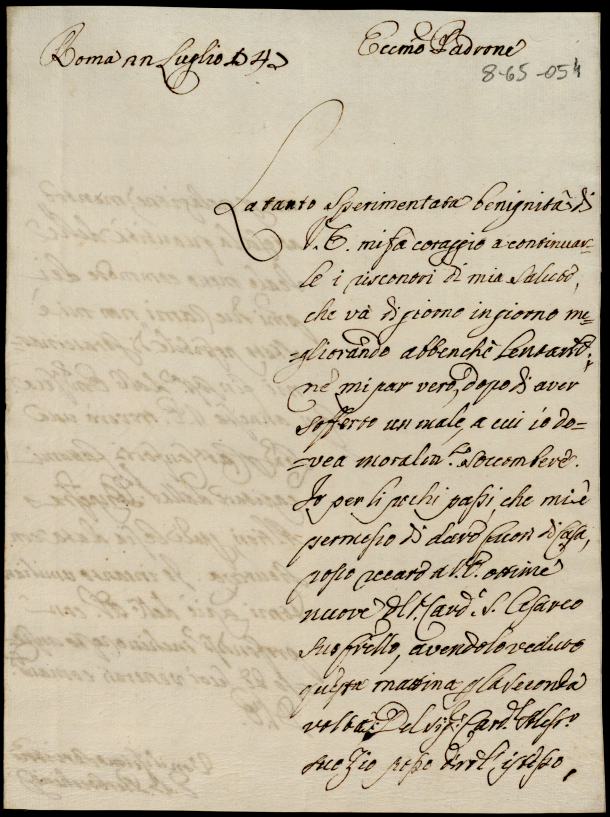 Roma 22 Luglio 54
Eccmo Padrone
8-65-054
La tanto sperimentata benignità di
V. E. mi fà coraggio a continuar-
le i riscontri di mia salute,
che và di giorno in giorno mi-
=gliorando abbenchè lentamte,
nè mi par vero, dopo di aver
sofferto un male, a cui io do-
=vea moralmte soccombere.
Io per li pochi passi, che mi è
permesso di dare fuori di Casa,
posso recare a V. E. ottime
nuove del Sr. Card. S. Cesareo
suo frello, avendolo veduto
questa mattina p la seconda
volta; Del Sigr. Card. Alessro
suo Zio posso dirle l'istesso,